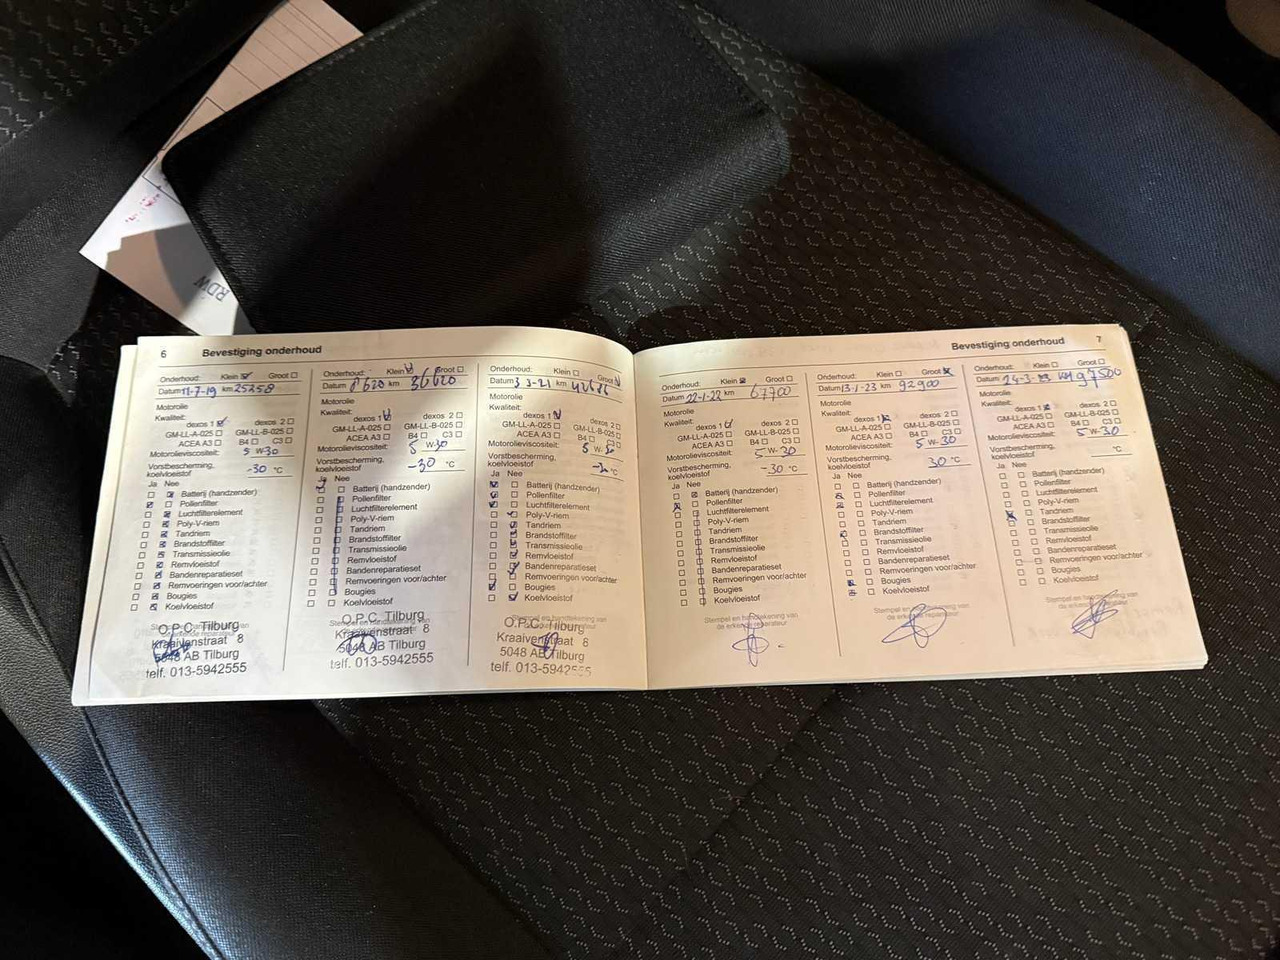 RDW
6
Bevestiging onderhoud
Onderhoud: Klein Groot
Datum 11-7-19 km 25358
Motorolie
Kwaliteit:
dexos 1 dexos 2
GM-LL-A-025 GM-LL-B-025
ACEA A3 B4 C3
Motorolieviscositeit: 5 W-30
Vorstbescherming,
koelvloeistof -30 °C
Ja Nee
Batterij (handzender)
Pollenfilter
Luchtfilterelement
Poly-V-riem
Tandriem
Brandstoffilter
Transmissieolie
Remvloeistof
Bandenreparatieset
Remvoeringen voor/achter
Bougies
Koelvloeistof
O.P.C. Tilburg
Kraaivenstraat 8
5048 AB Tilburg
telf. 013-5942555
Onderhoud: Klein Groot
Datum km 36620
Motorolie
Kwaliteit:
dexos 1 dexos 2
GM-LL-A-025 GM-LL-B-025
ACEA A3 B4 C3
Motorolieviscositeit: 5 W-30
Vorstbescherming,
koelvloeistof -30 °C
Ja Nee
Batterij (handzender)
Pollenfilter
Luchtfilterelement
Poly-V-riem
Tandriem
Brandstoffilter
Transmissieolie
Remvloeistof
Bandenreparatieset
Remvoeringen voor/achter
Bougies
Koelvloeistof
O.P.C. Tilburg
Kraaivenstraat 8
5048 AB Tilburg
telf. 013-5942555
Onderhoud: Klein Groot
Datum 3-3-21 km
Motorolie
Kwaliteit:
dexos 1 dexos 2
GM-LL-A-025 GM-LL-B-025
ACEA A3 B4 C3
Motorolieviscositeit: 5 W-30
Vorstbescherming,
koelvloeistof °C
Ja Nee
Batterij (handzender)
Pollenfilter
Luchtfilterelement
Poly-V-riem
Tandriem
Brandstoffilter
Transmissieolie
Remvloeistof
Bandenreparatieset
Remvoeringen voor/achter
Bougies
Koelvloeistof
O.P.C. Tilburg
Kraaivenstraat 8
5048 AB Tilburg
telf. 013-5942555
Bevestiging onderhoud
7
Onderhoud: Klein Groot
Datum 22-1-22 km 67700
Motorolie
Kwaliteit:
dexos 1 dexos 2
GM-LL-A-025 GM-LL-B-025
ACEA A3 B4 C3
Motorolieviscositeit: 5 W-30
Vorstbescherming,
koelvloeistof -30 °C
Ja Nee
Batterij (handzender)
Pollenfilter
Luchtfilterelement
Poly-V-riem
Tandriem
Brandstoffilter
Transmissieolie
Remvloeistof
Bandenreparatieset
Remvoeringen voor/achter
Bougies
Koelvloeistof
Stempel en handtekening van
de erkende reparateur
Onderhoud: Klein Groot
Datum 13-1-23 km 92900
Motorolie
Kwaliteit:
dexos 1 dexos 2
GM-LL-A-025 GM-LL-B-025
ACEA A3 B4 C3
Motorolieviscositeit: 5 W-30
Vorstbescherming,
koelvloeistof 30 °C
Ja Nee
Batterij (handzender)
Pollenfilter
Luchtfilterelement
Poly-V-riem
Tandriem
Brandstoffilter
Transmissieolie
Remvloeistof
Bandenreparatieset
Remvoeringen voor/achter
Bougies
Koelvloeistof
Stempel en handtekening van
de erkende reparateur
Onderhoud: Klein Groot
Datum 24-3-23 KM 97500
Motorolie
Kwaliteit:
dexos 1 dexos 2
GM-LL-A-025 GM-LL-B-025
ACEA A3 B4 C3
Motorolieviscositeit: 5 W-30
Vorstbescherming,
koelvloeistof °C
Ja Nee
Batterij (handzender)
Pollenfilter
Luchtfilterelement
Poly-V-riem
Tandriem
Brandstoffilter
Transmissieolie
Remvloeistof
Bandenreparatieset
Remvoeringen voor/achter
Bougies
Koelvloeistof
Stempel en handtekening van
de erkende reparateur